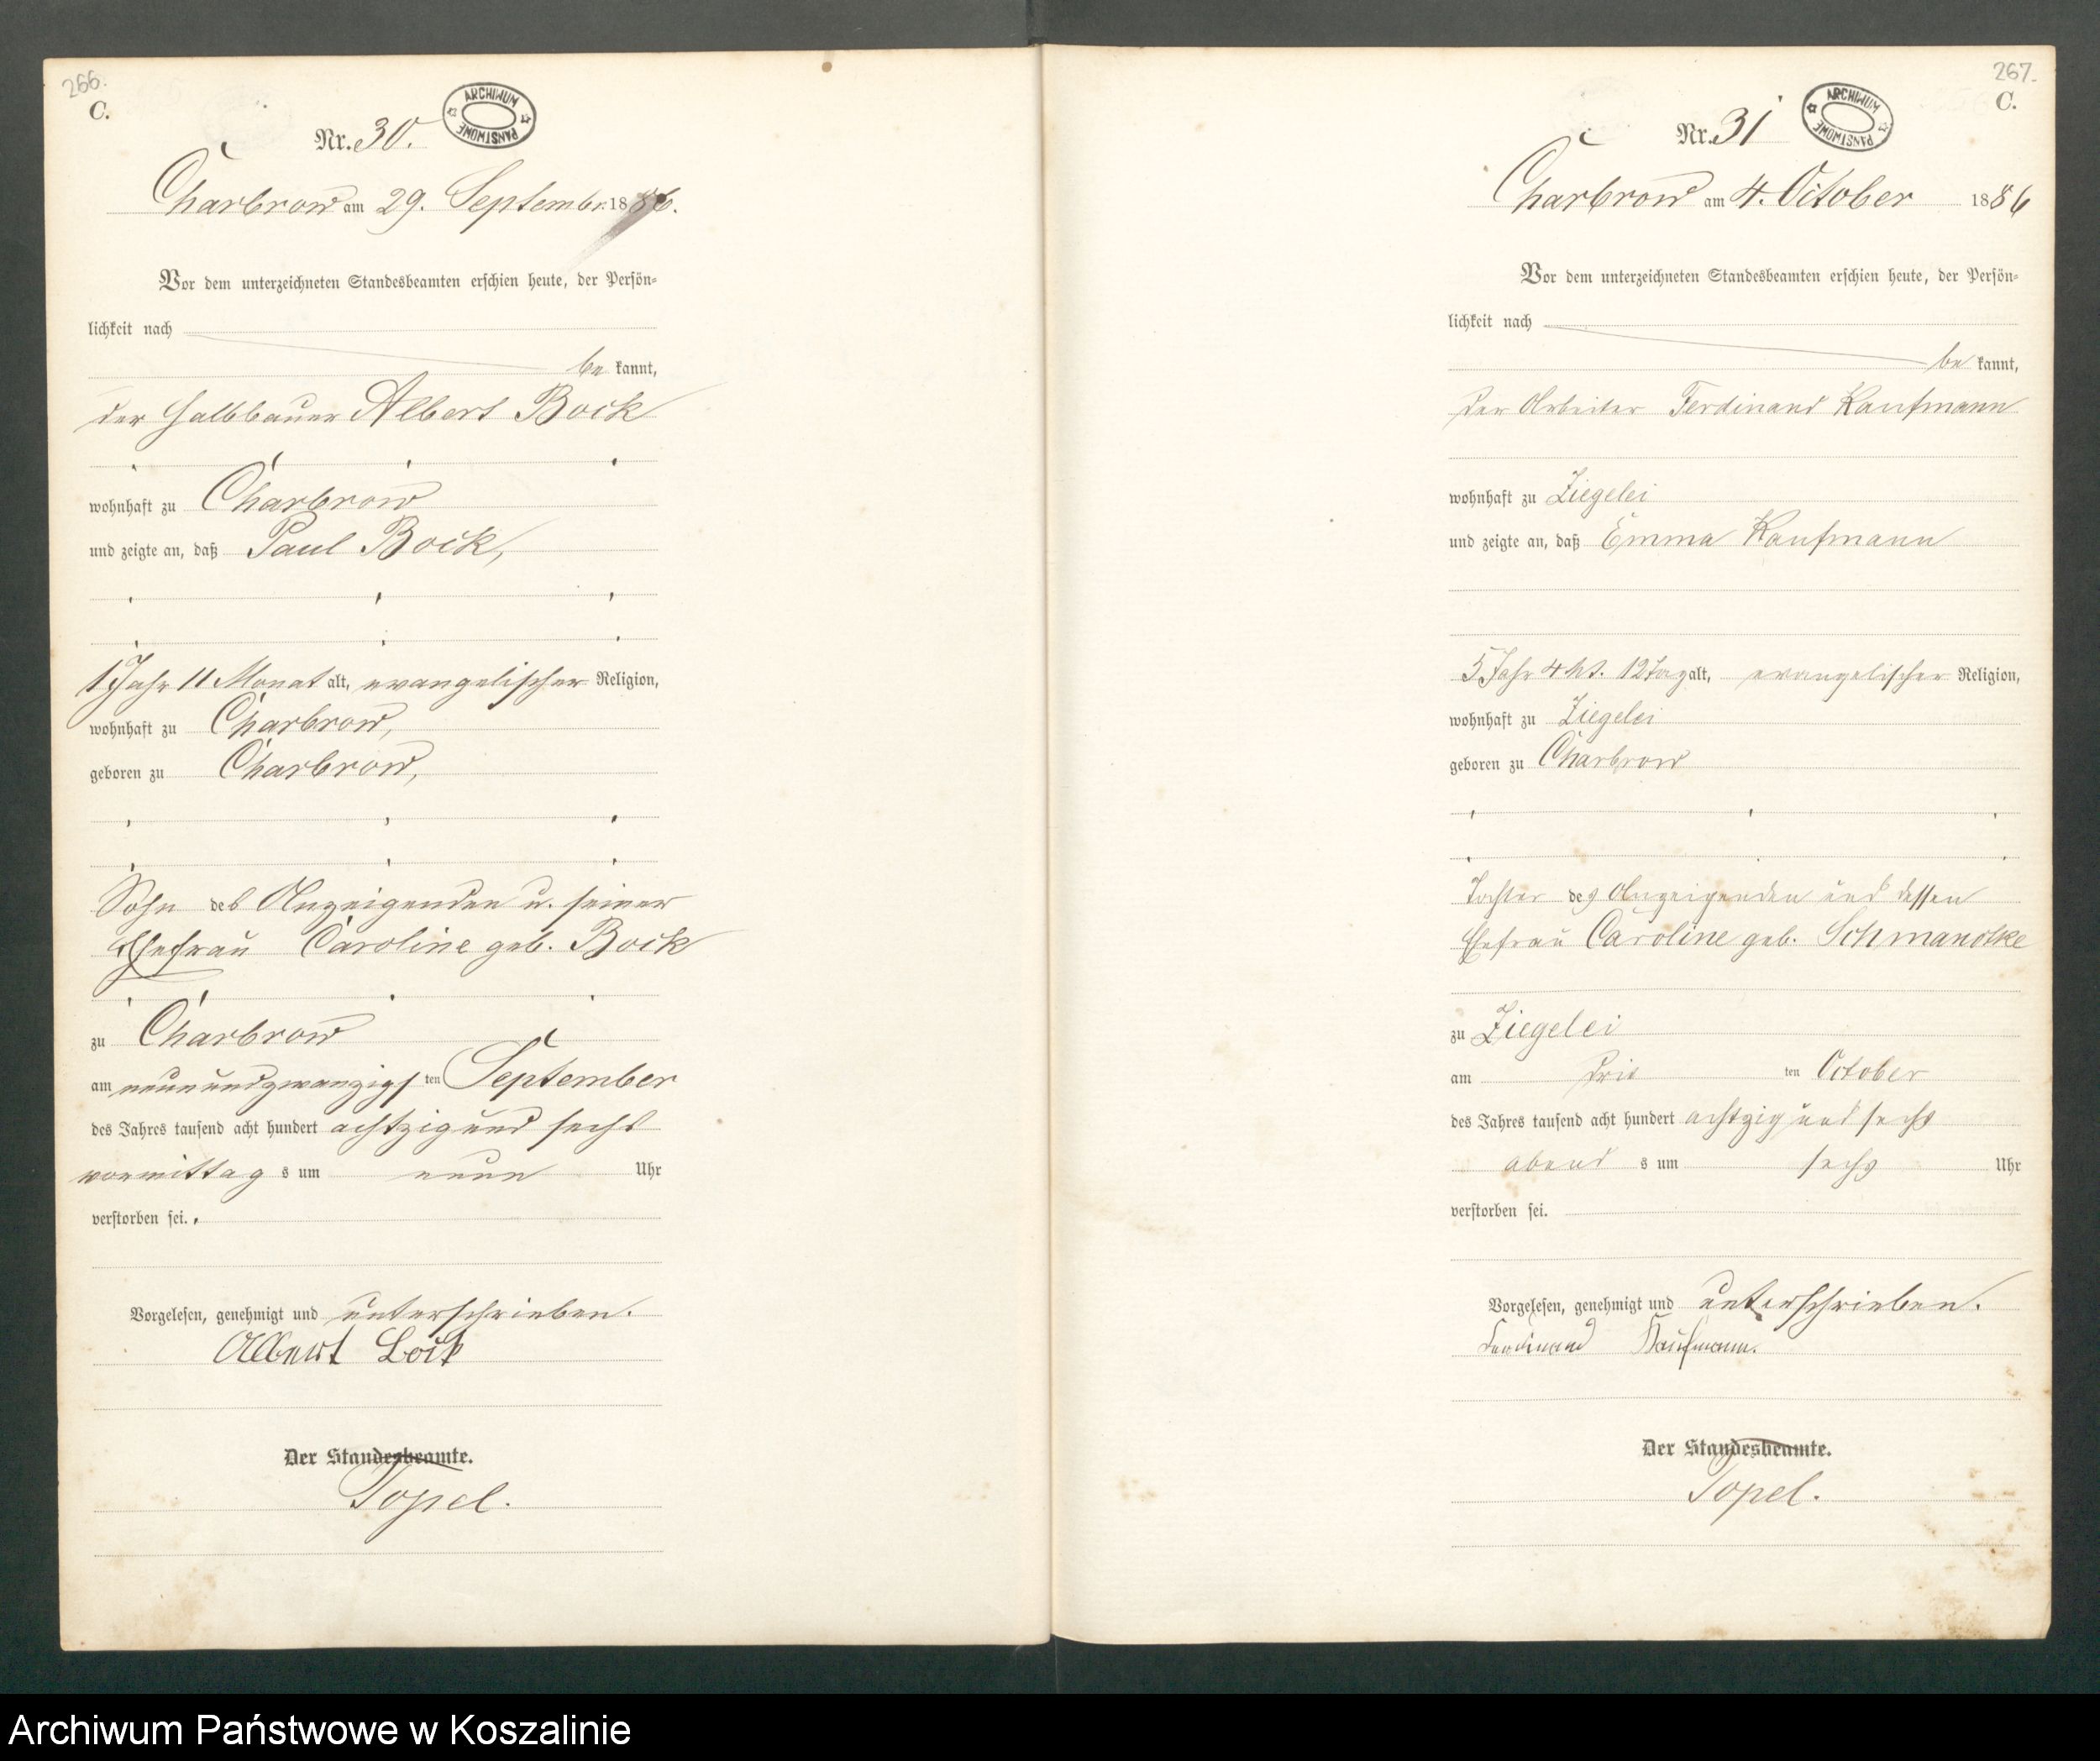 266.
C.
Nr. 30.
ARCHIWUM PAŃSTWOWE
Charbrow am 29. Septembr. 1886.
Vor dem unterzeichneten Standesbeamten erschien heute, der Persön=
lichkeit nach
be kannt,
der Halbbauer Albert Bock
wohnhaft zu Charbrow
und zeigte an, daß Paul Bock,
1 Jahr 11 Monat alt, evangelischer Religion,
wohnhaft zu Charbrow,
geboren zu Charbrow,
Sohn des Anzeigenden u. seiner
Ehefrau Caroline geb. Bock
zu Charbrow
am neunundzwanzigsten September
des Jahres tausend acht hundert achtzig und sechs
vormittags um neun Uhr
verstorben sei.
Vorgelesen, genehmigt und unterschrieben.
Albert Bock
Der Standesbeamte.
Topel.
267.
C.
Nr. 31
ARCHIWUM PAŃSTWOWE
Charbrow am 4. October 1886
Vor dem unterzeichneten Standesbeamten erschien heute, der Persön=
lichkeit nach
be kannt,
der Arbeiter Ferdinand Kaufmann
wohnhaft zu Ziegelei
und zeigte an, daß Emma Kaufmann
5 Jahr 4 Mt. 12 Tag alt, evangelischer Religion,
wohnhaft zu Ziegelei
geboren zu Charbrow
Tochter des Anzeigenden und dessen
Ehefrau Caroline geb. Schmandtke
zu Ziegelei
am dritten October
des Jahres tausend acht hundert achtzig und sechs
abends um sechs Uhr
verstorben sei.
Vorgelesen, genehmigt und unterschrieben.
Ferdinand Kaufmann.
Der Standesbeamte.
Topel.
Archiwum Państwowe w Koszalinie